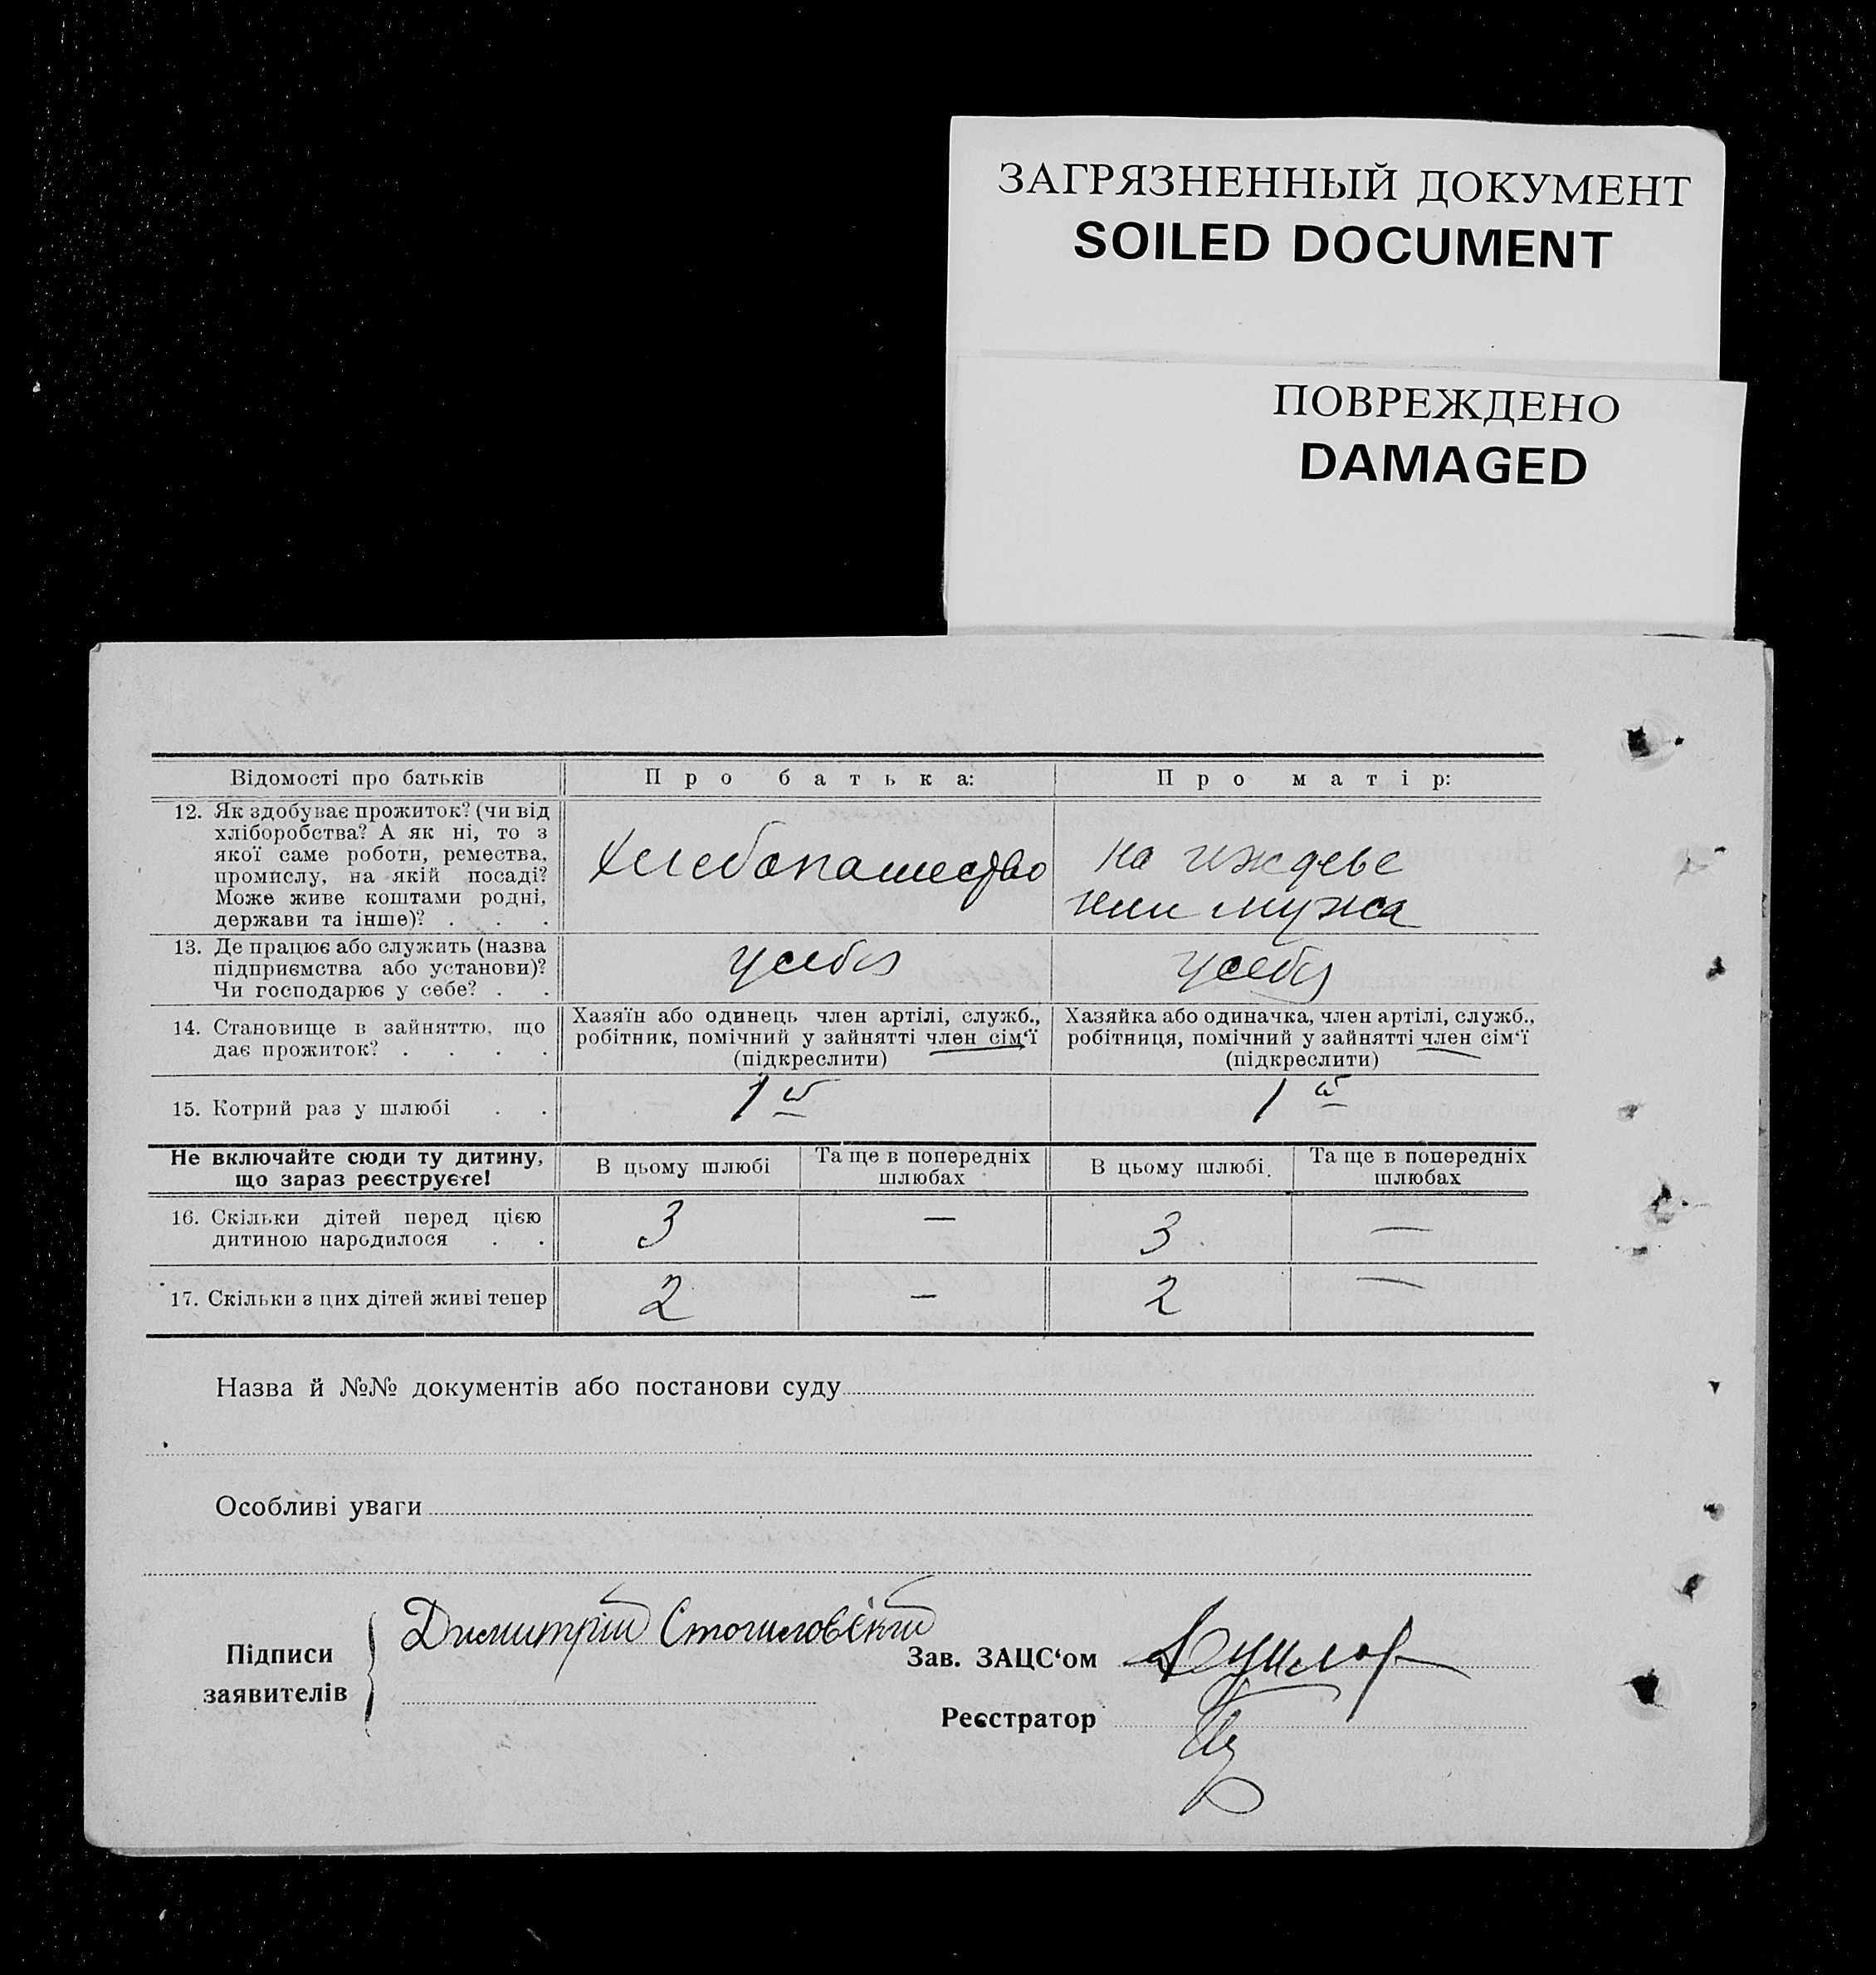 ЗАГРЯЗНЕННЫЙ ДОКУМЕНТ
SOILED DOCUMENT
ПОВРЕЖДЕНО
DAMAGED
Відомості про батьків
Про батька:
Про матір:
12. Як здобуває прожиток? (чи від
хліборобства? А як ні, то з
якої саме роботи, ремества,
промислу, на якій посаді?
Може живе коштами родні,
держави та інше)? . . .
Хлебопашество
на иждеве
нии мужа
13. Де працює або служить (назва
підприємства або установи)?
Чи господарює у себе? . .
у себя
у себя
14. Становище в зайняттю, що
дає прожиток? . . . .
Хазяїн або одинець член артілі, служб.,
робітник, помічний у зайнятті член сім'ї
(підкреслити)
Хазяйка або одиначка, член артілі, служб.,
робітниця, помічний у зайнятті член сім'ї
(підкреслити)
15. Котрий раз у шлюбі . .
1й
1й
Не включайте сюди ту дитину,
що зараз реєструєте!
В цьому шлюбі
Та ще в попередніх
шлюбах
В цьому шлюбі
Та ще в попередніх
шлюбах
16. Скільки дітей перед цією
дитиною народилося . .
3 — 3 —
17. Скільки з цих дітей живі тепер
2 — 2 —
Назва й №№ документів або постанови суду
Особливі уваги
Підписи
заявителів
Димитрій
Зав. ЗАЦС'ом
Реєстратор